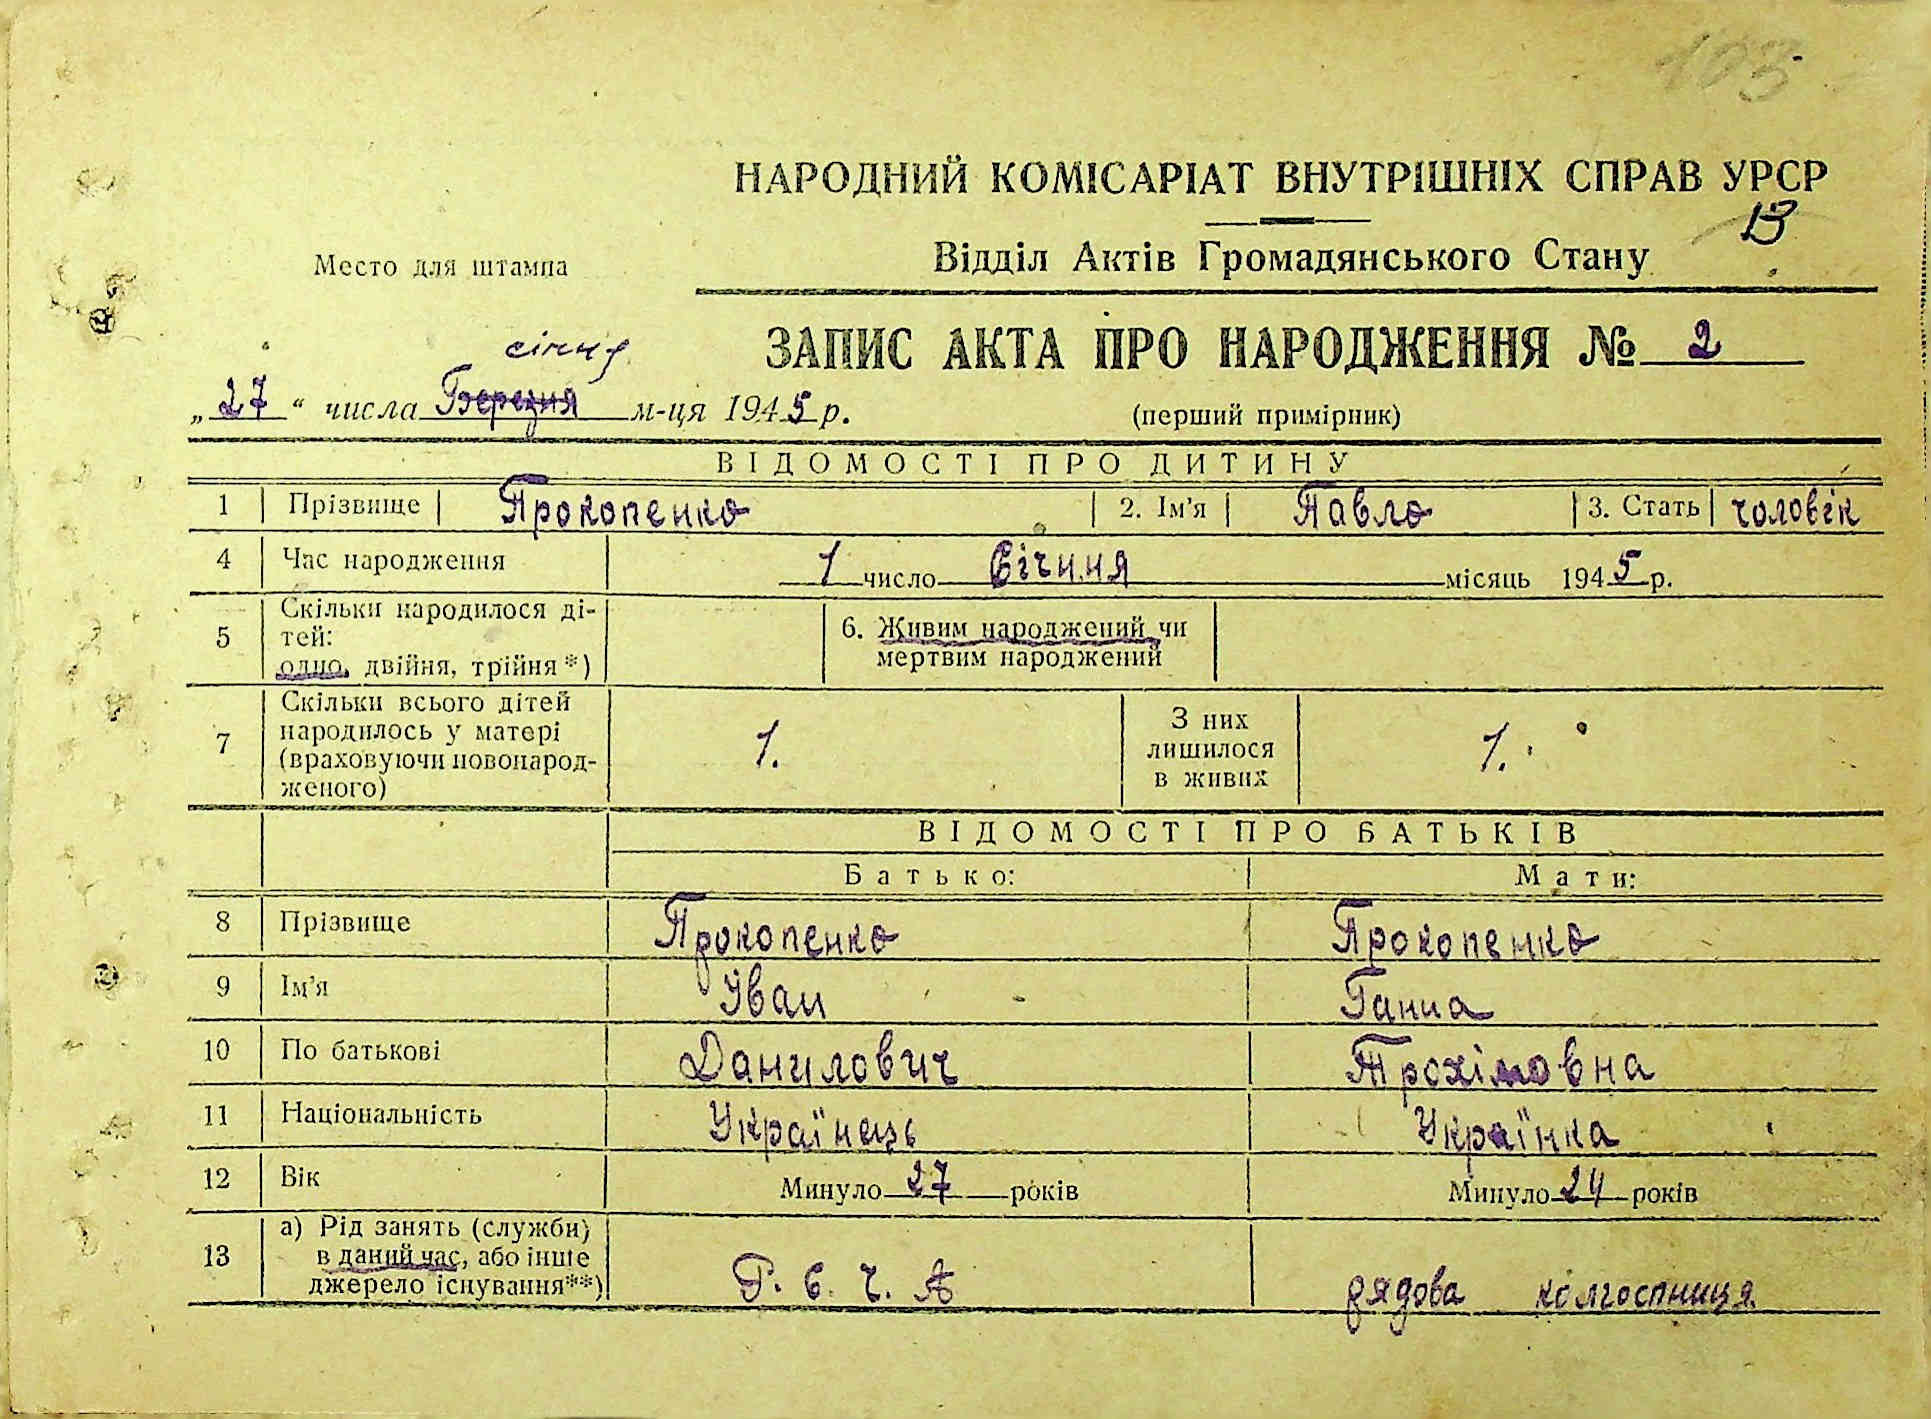 103
НАРОДНИЙ КОМІСАРІАТ ВНУТРІШНІХ СПРАВ УРСР
13
Відділ Актів Громадянського Стану
Место для штампа
ЗАПИС АКТА ПРО НАРОДЖЕННЯ № 2
січня
„27“ числа Березня м-ця 1945 р.
(перший примірник)
ВІДОМОСТІ ПРО ДИТИНУ
1 Прізвище Прокопенко 2. Ім'я Павло 3. Стать чоловік
4 Час народження 1 число Січння місяць 1945 р.
5 Скільки народилося ді-
тей:
одно, двійня, трійня*)
6. Живим народжений чи
мертвим народжений
7 Скільки всього дітей
народилось у матері
(враховуючи новонарод-
женого)
1.
З них
лишилося
в живих
1.
ВІДОМОСТІ ПРО БАТЬКІВ
Батько: Мати:
8 Прізвище Прокопенко Прокопенко
9 Ім'я Іван Ганна
10 По батькові Данилович Трохімовна
11 Національність Українець Українка
12 Вік Минуло 27 років Минуло 24 років
13 а) Рід занять (служби)
в даний час, або інше
джерело існування**)
Р. С. Ч. А рядова колгоспниця